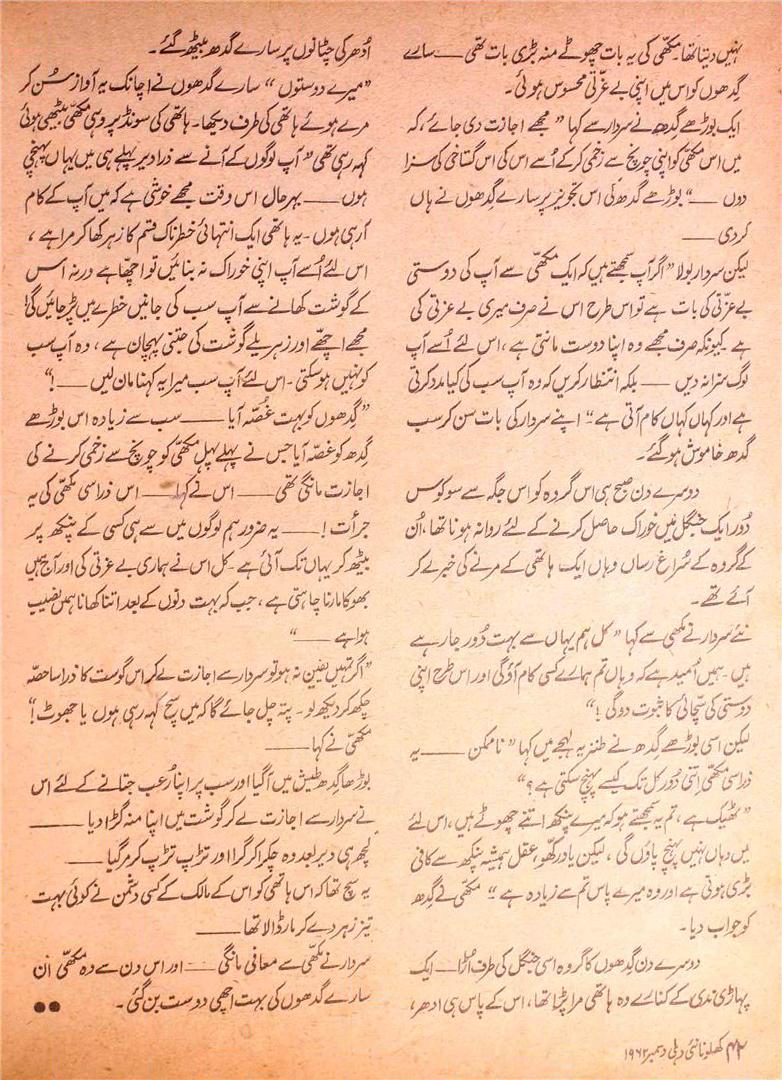 نہیں دیتا تھا۔ مکھّی کی یہ بات چھوٹے منہ بڑی بات تھی ــــ سارے
گِدھوں کو اس میں اپنی بے عزّتی محسوس ہوئی۔
ایک بوڑھے گدھ نے سردار سے کہا ” مجھے اجازت دی جائے، کہ
میں اس مکھّی کو اپنی چونچ سے زخمی کرکے اُسے اس کی اس گستاخی کی سزا
دوں ــــ“ بوڑھے گدھ کی اس تجویز پر سارے گِدھوں نے ہاں
کردی ــــ
لیکن سردار بولا ” اگر آپ سمجھتے ہیں کہ ایک مکھّی سے آپ کی دوستی
بے عزّتی کی بات ہے تو اس طرح اس نے صرف میری بے عزتی کی
ہے کیونکہ صرف مجھے وہ اپنا دوست مانتی ہے، اس لئے اُسے آپ
لوگ سزا نہ دیں ــــ بلکہ انتظار کریں کہ وہ آپ سب کی کیا مدد کرتی
ہے اور کہاں کہاں کام آتی ہے“ اپنے سردار کی بات سن کر سب
گدھ خاموش ہوگئے۔
دوسرے دن صبح ہی اس گروہ کو اس جگہ سے سو کوس
دُور ایک جنگل میں خوراک حاصل کرنے کے لئے روانہ ہونا تھا، اُن
کے گروہ کے سُراغ رساں وہاں ایک ہاتھی کے مرنے کی خبر لے کر
آئے تھے۔
نئے سردار نے مکھی سے کہا ” کل ہم یہاں سے بہت دُور جا رہے
ہیں۔ ہمیں اُمید ہے کہ وہاں تم ہمارے کسی کام آؤگی اور اس طرح اپنی
دوستی کی سچّائی کا ثبوت دوگی !“
لیکن اسی بوڑھے گِدھ نے طنزیہ لہجے میں کہا ” ناممکن ــــ یہ
ذراسی مکھّی اتنی دُور کل تک کیسے پہنچ سکتی ہے ؟“
” ٹھیک ہے، تم یہ سمجھتے ہو کہ میرے پنکھ اتنے چھوٹے ہیں، اس لئے
میں وہاں نہیں پہنچ پاؤں گی، لیکن یاد رکھّو، عقل ہمیشہ پنکھ سے کافی
بڑی ہوتی ہے اور وہ میرے پاس تم سے زیادہ ہے“ مکھّی نے گِدھ
کو جواب دیا۔
دوسرے دن گدھوں کا گروہ اسی جنگل کی طرف اُڑا ــــ ایک
پہاڑی ندی کے کنارے وہ ہاتھی مرا پڑا تھا، اس کے پاس ہی اِدھر،
اُدھر کی چٹانوں پر سارے گدھ بیٹھ گئے۔
” میرے دوستوں “ سارے گدھوں نے اچانک یہ آواز سُن کر
مرے ہوئے ہاتھی کی طرف دیکھا۔ ہاتھی کی سونڈ پر وہی مکھّی بیٹھی ہوئی
کہہ رہی تھی ” آپ لوگوں کے آنے سے ذرا دیر پہلے ہی میں یہاں پہنچی
ہوں ــــ بہرحال اس وقت مجھے خوشی ہے کہ میں آپ کے کام
آرہی ہوں۔ یہ ہاتھی ایک انتہائی خطرناک قسم کا زہر کھا کر مرا ہے،
اس لئے اُسے آپ اپنی خوراک نہ بنائیں تو اچھّا ہے ورنہ اس
کے گوشت کھانے سے آپ سب کی جانیں خطرے میں پڑ جائیں گی!
مجھے اچھّے اور زہریلے گوشت کی جتنی پہچان ہے، وہ آپ سب
کو نہیں ہوسکتی۔ اس لئے آپ سب میرا یہ کہنا مان لیں ــــ!“
” گِدھوں کو بہت غصّہ آیا ــــ سب سے زیادہ اس بوڑھے
گدھ کو غصّہ آیا جس نے پہلے پہل مکھّی کو چونچ سے زخمی کرنے کی
اجازت مانگی تھی ــــ اس نے کہا ــــ اس ذراسی مکھّی کی یہ
جرأت ! ــــ یہ ضرور ہم لوگوں میں سے ہی کسی کے پنکھ پر
بیٹھ کر یہاں تک آئی ہے۔ کل اس نے ہماری بے عزتی کی اور آج ہمیں
بھوکا مارنا چاہتی ہے، جب کہ بہت دنوں کے بعد اتنا کھانا ہمیں نصیب
ہوا ہے ــــ“
” اگر تمہیں یقین نہ ہو تو سردار سے اجازت لے کر اس گوشت کا ذرا سا حصّہ
چکھ کر دیکھ لو۔ پتہ چل جائے گا کہ میں سچ کہہ رہی ہوں یا جھوٹ !“
مکھّی نے کہا ــــ
بوڑھا گِدھ طیش میں آگیا اور سب پر اپنا رُعب جتانے کے لئے اس
نے سردار سے اجازت لے کر گوشت میں اپنا منہ گڑا دیا ــــ
کچھ ہی دیر بعد وہ چکرا کر گرا اور تڑپ تڑپ کر مرگیا ــــ
یہ سچ تھا کہ اس ہاتھی کو اس کے مالک کے کسی دشمن نے کوئی بہت
تیز زہر دے کر مار ڈالا تھا ــــ
سردار نے مکھّی سے معافی مانگی ــــ اور اس دن سے وہ مکھّی ان
سارے گدھوں کی بہت اچھی دوست بن گئی۔ ●●
کھلونا نئی دہلی دسمبر ۱۹۶۲